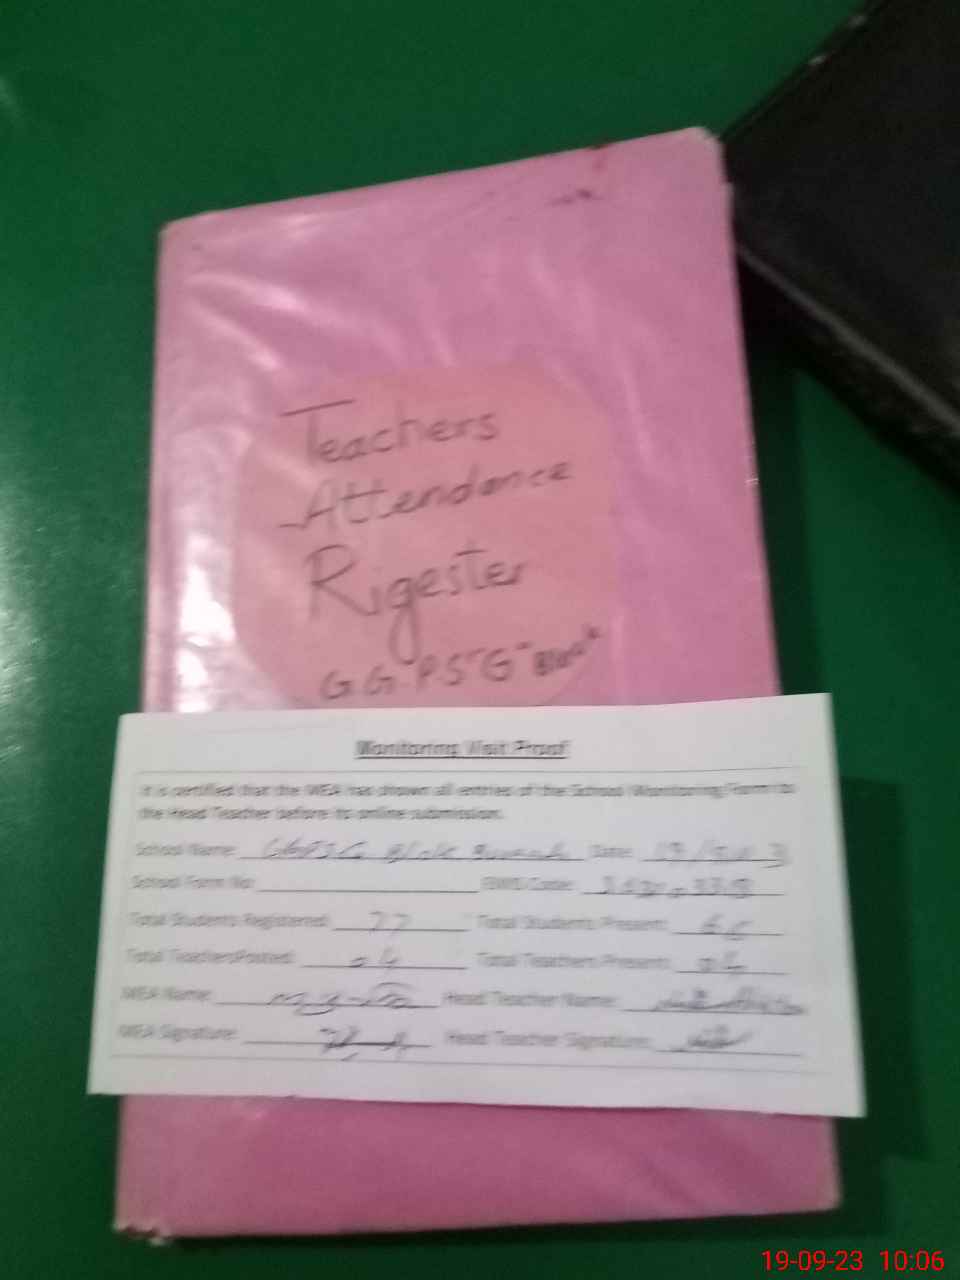 Teachers
Attendance
Rigester
G.G.P.S "G" Block
Monitoring Visit Proof
It is certified that the MEA has shown all entries of the School Monitoring Form to
the Head Teacher before its online submission.
School Name: Date:
School Form No: EMIS Code:
Total Students Registered: 77 Total Students Present:
Total Teachers Posted: 04 Total Teachers Present: 04
MEA Name: Head Teacher Name:
MEA Signature: Head Teacher Signature:
19-09-23 10:06